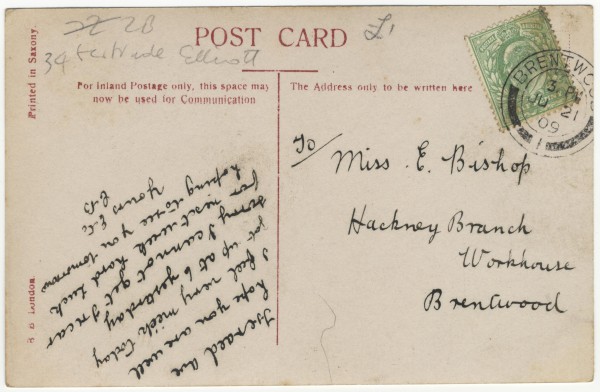 2B
34 Gertrude Elliott
£1
POST CARD
Printed in Saxony.
For Inland Postage only, this space may
now be used for Communication
The Address only to be written here
BRENTWOO
3 PM
JU 21
09
To/
Miss E. Bishop
Hackney Branch
Workhouse
Brentwood
hope you are well
I feel very today
got up at 6 yesterday
sorry I cannot get
for next week hard luck
hoping to see you tomorrow
Yours
London.